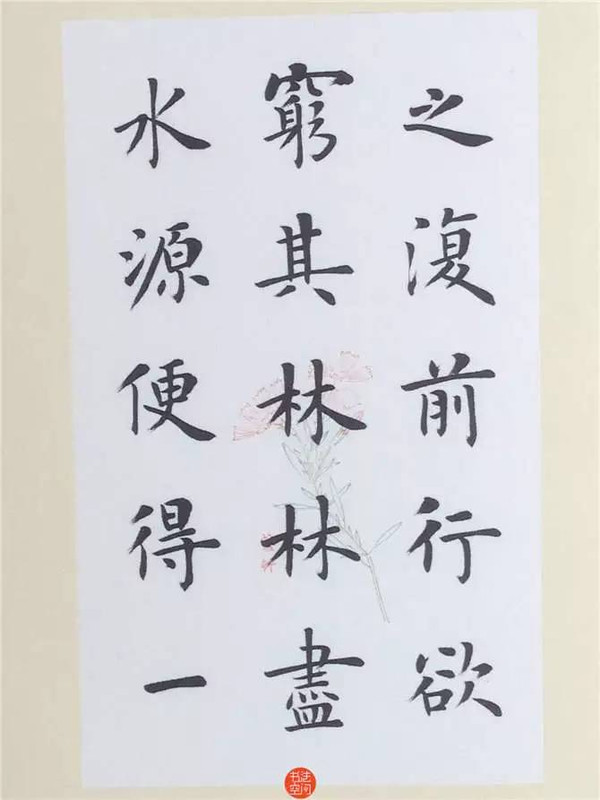 之復前行欲
窮其林林盡
水源便得一
书法
空间